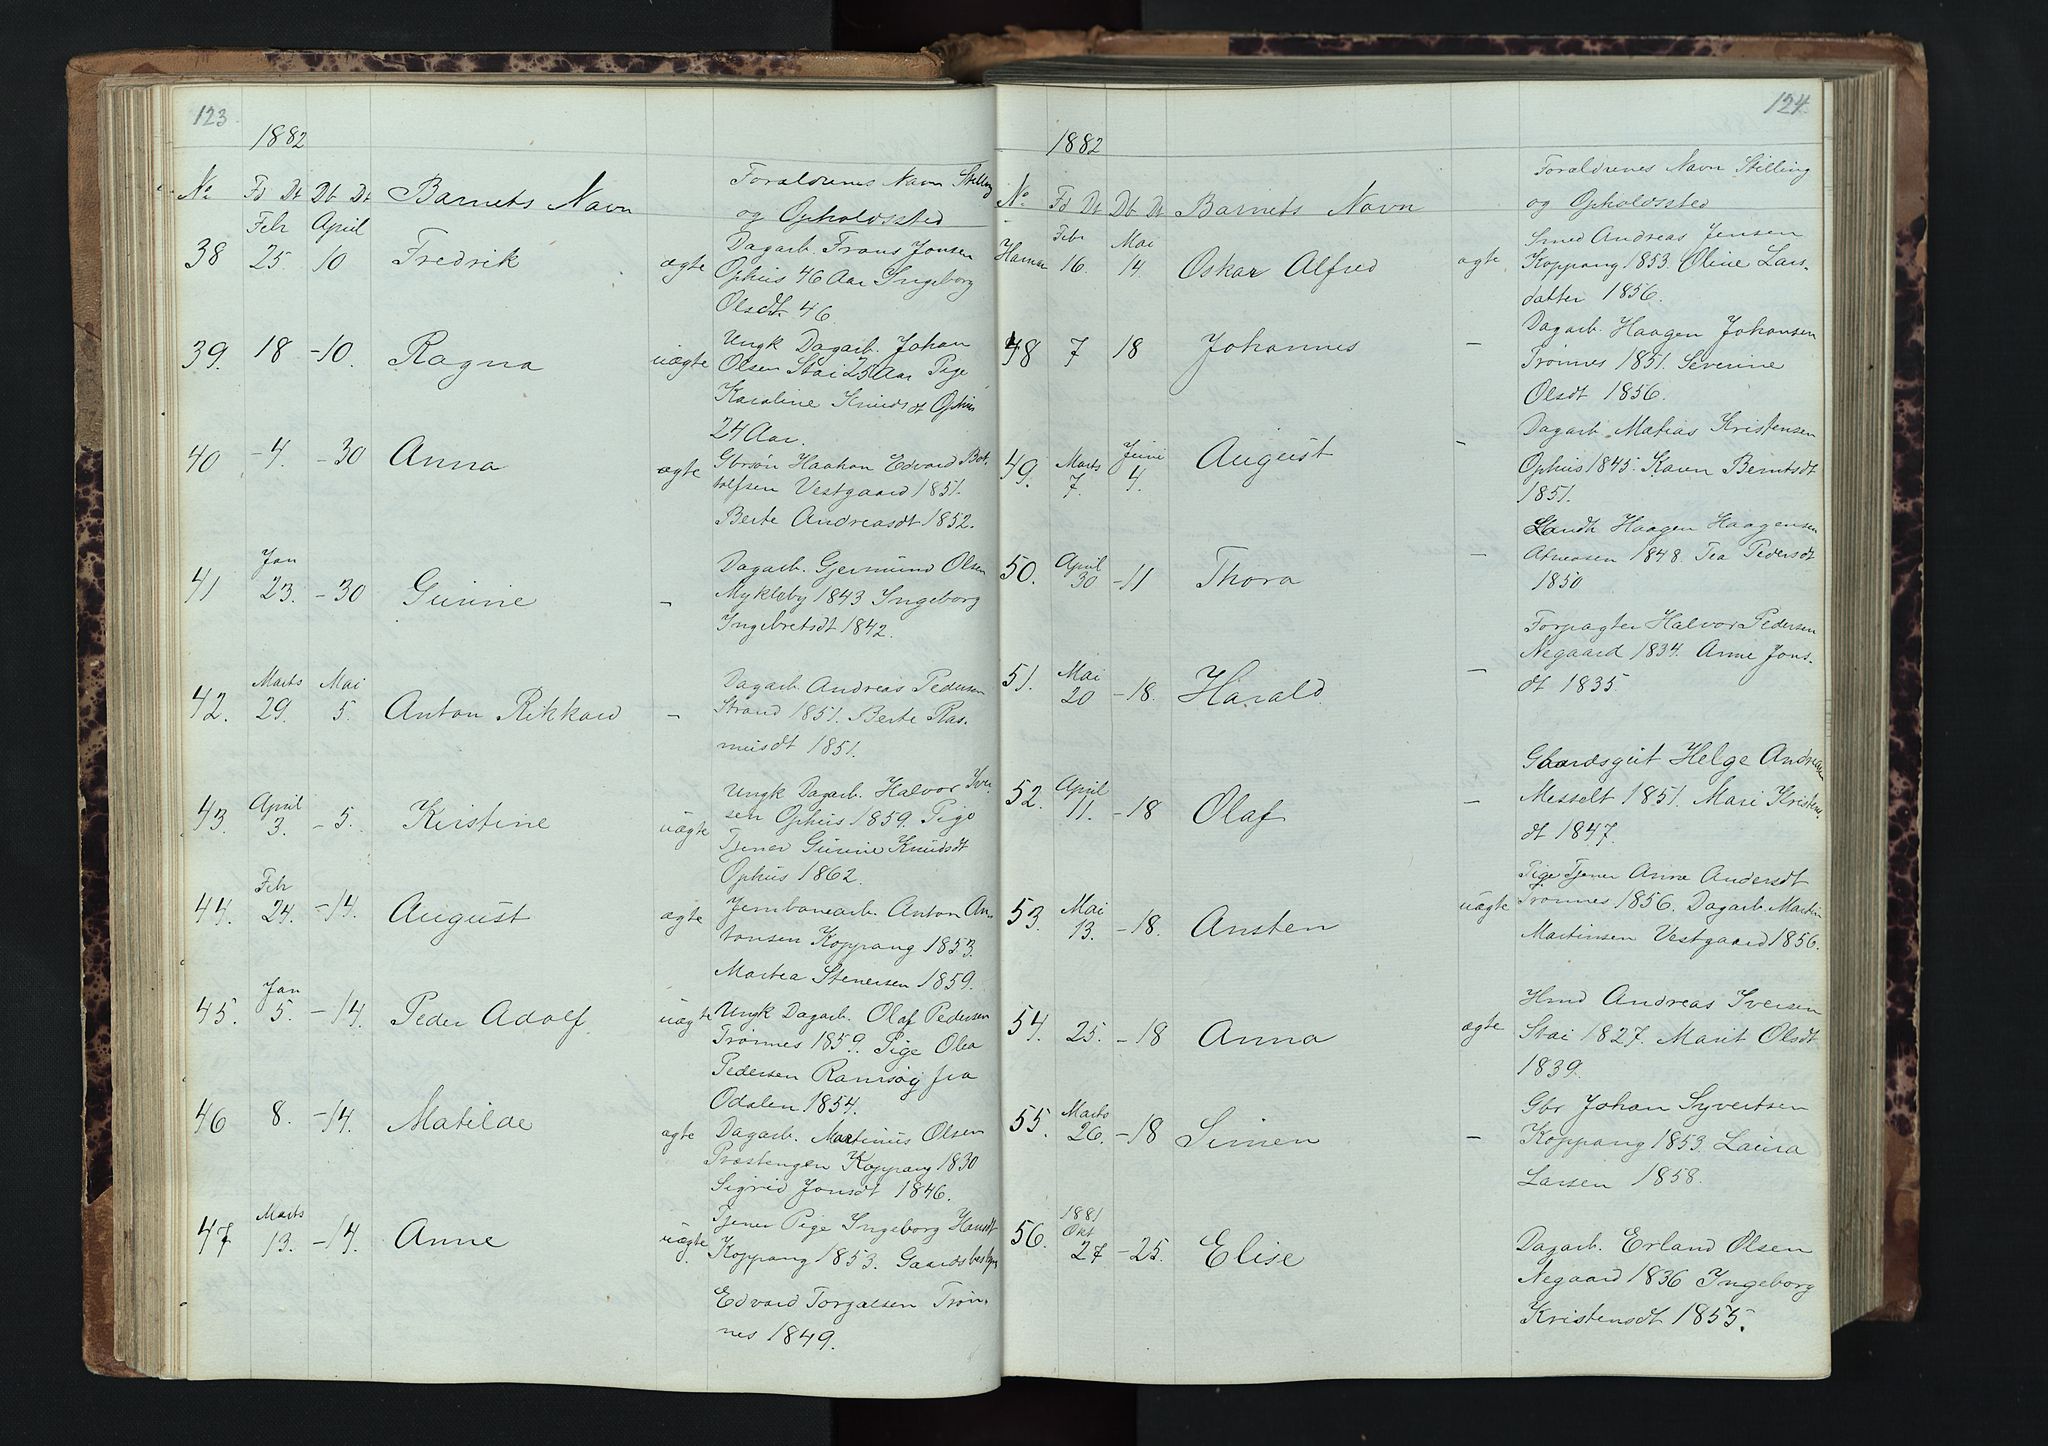 123
1882
No Fd Dt Db Dt Barnets Navn Forældrenes Navn Stilling
og Opholdssted
Feb April
38 25. 10 Fredrik ægte Dagarb. Frans Jonsen
Ophus 46 Aar Ingeborg
Olsdt. 46.
39. 18 -10. Ragna uægte Ungk Dagarb. Johan
Olsen Stai 25 Aar Pige
Karoline Knudsdt Ophus
24 Aar.
40 -4. -30 Anna ægte Gbrsøn Haakon Edvard Bot-
tolfsen Vestgaard 1851.
Berte Andreasdt 1852.
Jan
41 23. -30 Gunine - Dagarb. Gjermund Olsen
Mykleby 1843 Ingeborg
Ingebretsdt 1842.
Marts Mai
42. 29. 5. Anton Rikkard - Dagarb. Andreas Pedersen
Strand 1851. Berte Ras-
musdt 1851.
April
43. 3. -5. Kirstine uægte Ungk Dagarb. Halvor Iver-
sen Ophus 1859. Pige
Tjener Gunine Knudsdt
Ophus 1862.
Feb
44. 24. -14. August ægte Jernbanearb. Anton An-
tonsen Koppang 1853.
Martea Stenersen 1859.
Jan
45. 5. -14. Peder Adolf. uægte Ungk Dagarb. Olaf Pedersen
Trønnes 1859. Pige Olea
Pedersen Ramsøg fra
Odalen 1854.
46 8. -14. Matilde ægte Dagarb. Martinus Olsen
Præstengen Koppang 1830
Sigrid Jonsdt 1846.
Marts
47 13. -14. Anne uægte Tjener Pige Ingeborg Hansdt
Koppang 1853. Gaardsbestyr
Edvard Torgalsen Trøn-
nes 1849.
124.
1882
No. Fd Dt Db Dt Barnets Navn Forældrenes Navn Stilling
og Opholdssted
Feb Mai
Hamar 16. 14. Oskar Alfred ægte Smed Andreas Jensen
Koppang 1853. Oline Lars-
datter 1856.
48 7 18 Johannes - Dagarb. Haagen Johansen
Trønnes 1851. Severine
Olsdt 1856.
Marts Juni
49. 7. 4. August - Dagarb Matias Kristensen
Ophus 1845. Karen Berntsdt
1851.
April
50. 30 -11 Thora - Landh Haagen Haagensen
Atneosen 1848. Tea Pedersdt
1850
Mai
51. 20 -18. Harald. - Forpagter Halvor Pedersen
Negaard 1834. Anne Jons-
dt 1835.
April
52. 11. -18 Olaf - Gaardsgut Helge Andreasen
Messelt 1851. Mari Kristens
dt 1847.
Mai
53. 13. -18. Ansten uægte Pige Tjener Anne Andersdt
Trønnes 1856. Dagarb. Martin
Martinsen Vestgaard 1856.
54. 25. -18 Anna ægte Hmd Andreas Iversen
Stai 1827. Marit Olsdt
1839.
Marts
55. 26. -18 Simen - Gbr Johan Syvertsen
Koppang 1853. Laura
Larsen 1858.
1881
Okt
56. 27 -25. Elise Dagarb. Erland Olsen
Negaard 1836 Ingeborg
Kristensdt 1855.